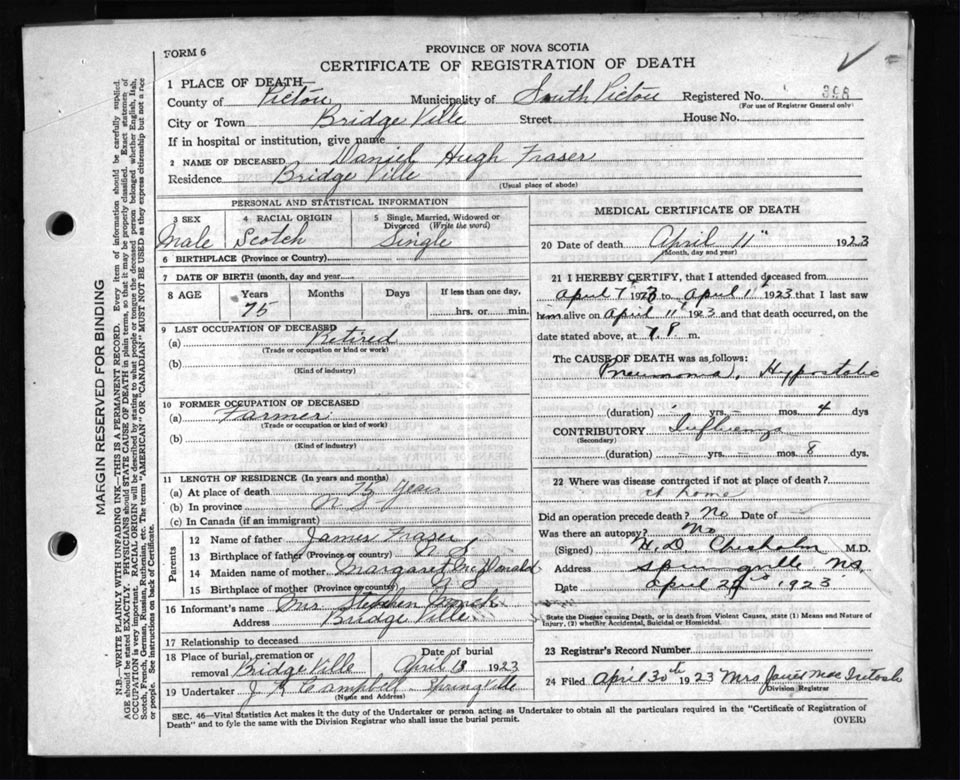 FORM 6
PROVINCE OF NOVA SCOTIA
CERTIFICATE OF REGISTRATION OF DEATH
1 PLACE OF DEATH—
County of Pictou Municipality of South Pictou Registered No.
(For use of Registrar General only)
City or Town Bridge Ville Street House No.
If in hospital or institution, give name
2 NAME OF DECEASED Daniel Hugh Fraser
Residence Bridge Ville
(Usual place of abode)
PERSONAL AND STATISTICAL INFORMATION
3 SEX Male
4 RACIAL ORIGIN Scotch
5 Single, Married, Widowed or Divorced (Write the word) Single
6 BIRTHPLACE (Province or Country)
7 DATE OF BIRTH (month, day and year)
8 AGE Years 75 Months Days If less than one day, hrs. or min.
9 LAST OCCUPATION OF DECEASED
(a) Retired
(Trade or occupation or kind or work)
(b)
(Kind of industry)
10 FORMER OCCUPATION OF DECEASED
(a) Farmer
(Trade or occupation or kind or work)
(b)
(Kind of industry)
11 LENGTH OF RESIDENCE (In years and months)
(a) At place of death 75 years
(b) In province N S
(c) In Canada (if an immigrant)
Parents
12 Name of father James Fraser
13 Birthplace of father (Province or country) N S
14 Maiden name of mother Margaret McDonald
15 Birthplace of mother (Province or country) N S
16 Informant's name Mr Stephen
Address Bridge Ville
17 Relationship to deceased
18 Place of burial, cremation or removal Bridge Ville Date of burial April 13 1923
19 Undertaker J R Campbell Springville
(Name and Address)
MEDICAL CERTIFICATE OF DEATH
20 Date of death April 11" 1923
(Month, day and year)
21 I HEREBY CERTIFY, that I attended deceased from
April 7 1923 to April 11 1923 that I last saw
him alive on April 11 1923 and that death occurred, on
date stated above, at P. m.
The CAUSE OF DEATH was as follows:
Pneumonia, Hypostatic
(duration) yrs. – mos. 4 dys
CONTRIBUTORY Influenza
(Secondary)
(duration) – yrs. – mos. 8 dys.
22 Where was disease contracted if not at place of death?
at home
Did an operation precede death? No Date of
Was there an autopsy? No
(Signed) H. D. Chisholm M.D.
Address Springville N.S.
Date April 1923
State the Disease causing Death, or in death from Violent Causes, state (1) Means and Nature of
Injury, (2) whether Accidental, Suicidal or Homicidal.
23 Registrar's Record Number
24 Filed April 30th 1923 Mrs James MacIntosh
Division Registrar
SEC. 46—Vital Statistics Act makes it the duty of the Undertaker or person acting as Undertaker to obtain all the particulars required in the "Certificate of Registration of
Death" and to fyle the same with the Division Registrar who shall issue the burial permit.
(OVER)
MARGIN RESERVED FOR BINDING
N.B.—WRITE PLAINLY WITH UNFADING INK—THIS IS A PERMANENT RECORD. Every item of information should be carefully supplied.
AGE should be stated EXACTLY. PHYSICIANS should STATE CAUSE OF DEATH in plain terms, so that it may be properly classified. Exact statement of
OCCUPATION is very important. RACIAL ORIGIN will be described by stating to what people or tongue the deceased person belonged whether English, Irish,
Scotch, French, German, Russian, Ruthenian, etc. The terms "AMERICAN" OR "CANADIAN" MUST NOT BE USED as they express citizenship but not a race
or people. See instructions on back of Certificate.